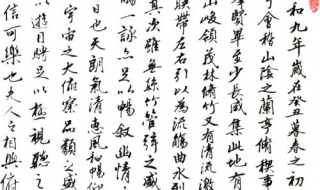 和九年歲在癸丑暮春之初
于會稽山陰之蘭亭脩稧事
羣賢畢至少長咸集此地有
山峻領茂林脩竹又有清流激
暎帶左右引以為流觴曲水列
其次雖無絲竹管絃之盛
觴一詠亦足以暢敘幽情
日也天朗氣清惠風和暢仰
宇宙之大俯察品類之盛
以遊目騁懷足以極視聽之
信可樂也夫人之相與俯